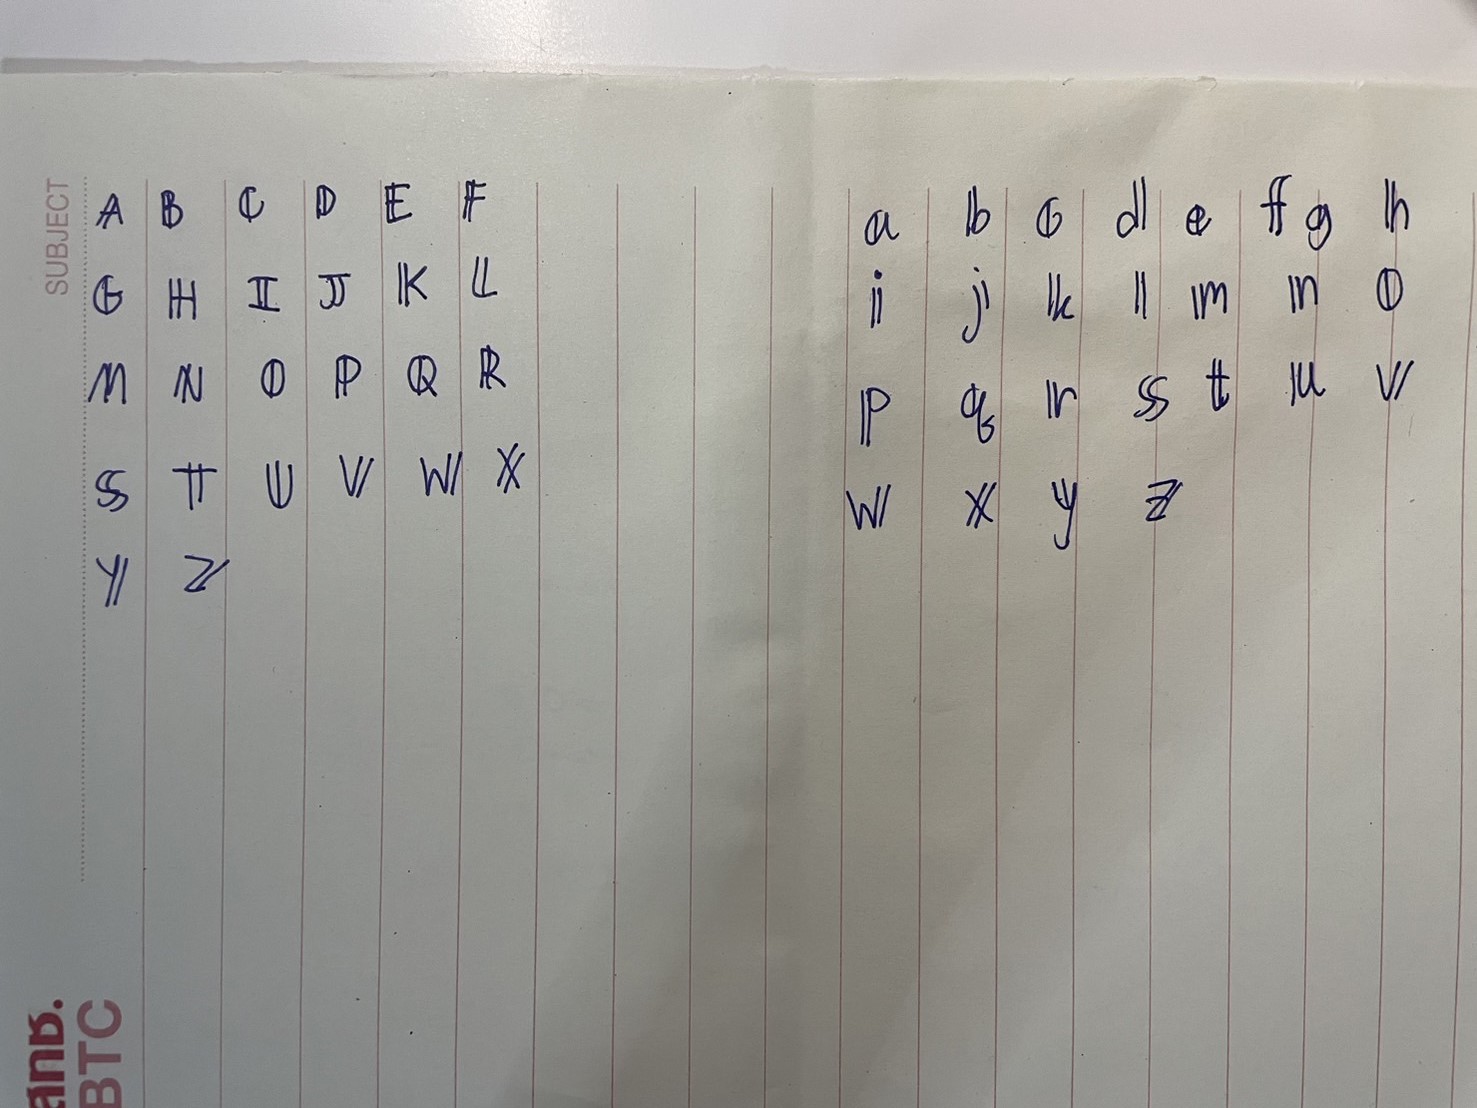 SUBJECT
A B C D E F
G H I J K L
M N O P Q R
S T U V W X
Y Z
a b c d e f g h
i j k l m n o
p q r s t u v
w x y z
สทช.
BTC